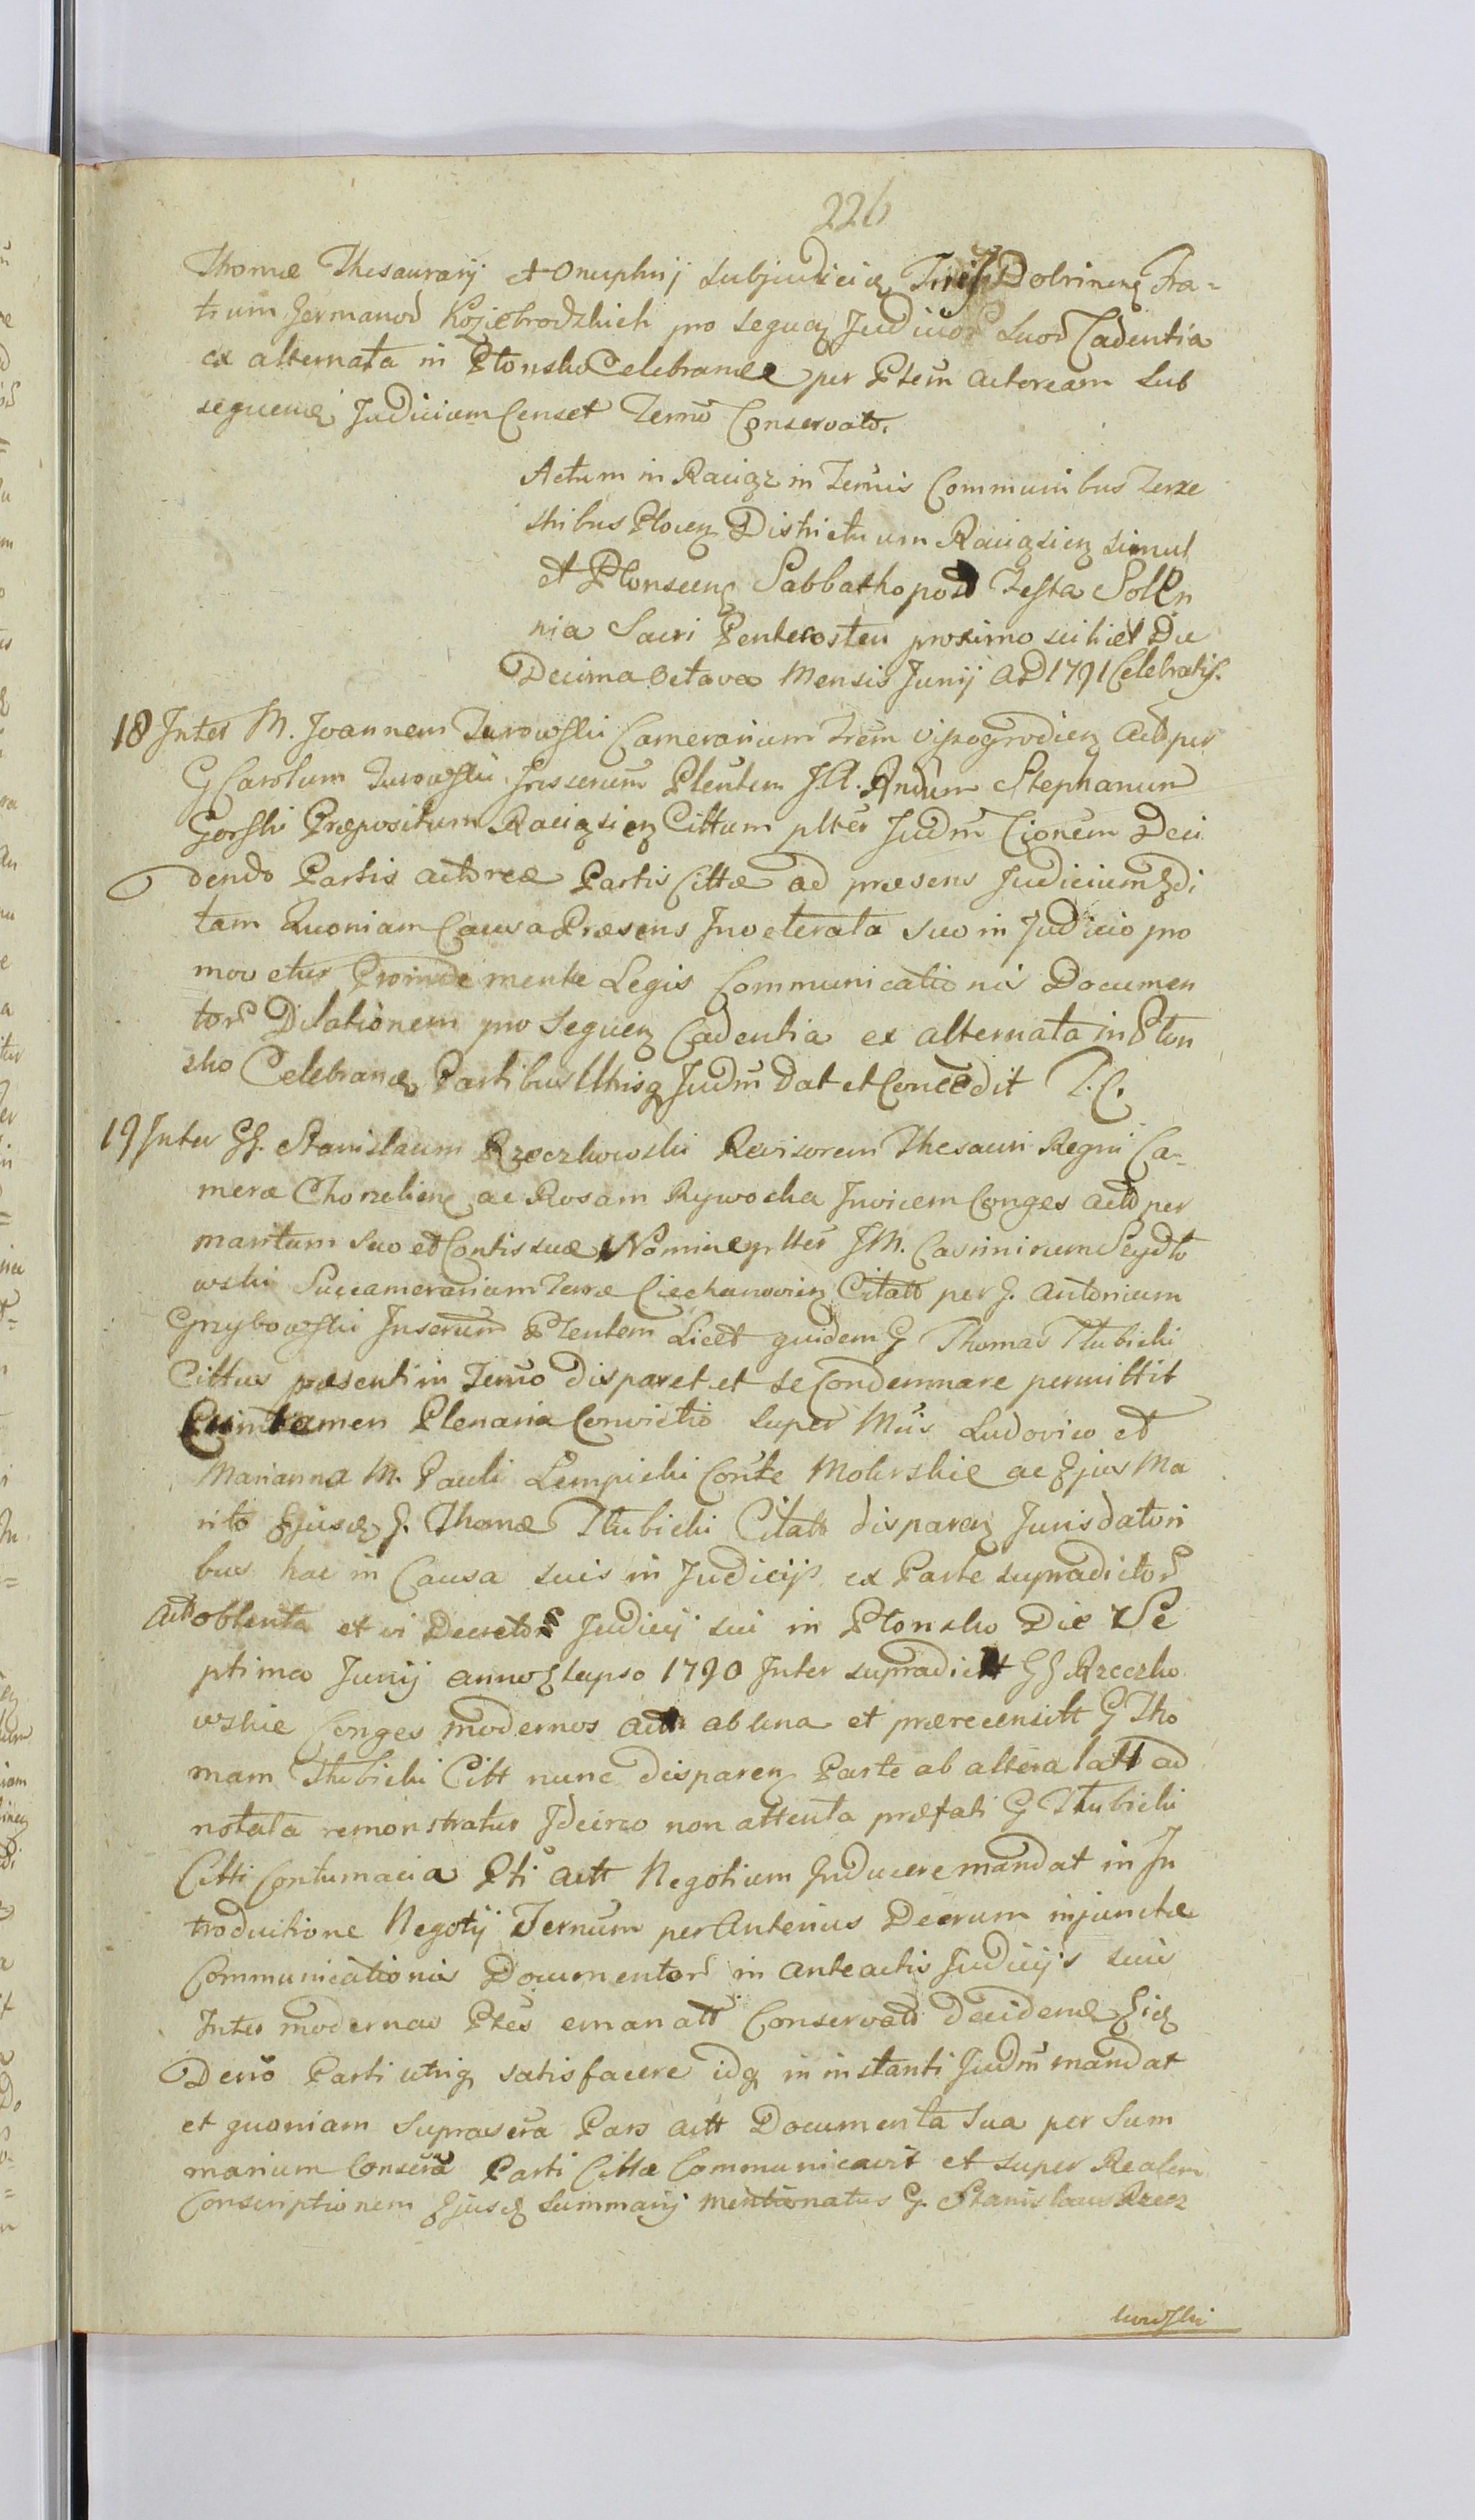 226
Thomæ Thesaurarij et Onuphrij Subjudicis Dobrinens Fra-
trum Germanor Koziebrodzkich pro sequen Judicior Suor Cadentia
ex alternata in Płonsko Celebrandæ per Ptem Actoream Sub
sequene Judicium Censet Termo Conservato.
Actum in Raciąz in Termis Communibus Terre
stribus Plocen Districtuum Raciązien simul
et Plonscens Sabbatho post Festa Solen
nia Sacri Pentecosten proximo scilicet Die
Decima Octava Mensis Junij AD 1791 Celebratis.
18 Inter M. Joannem Turowski Camerarium Trem Viszogrodien Act per
G Carolum Turowski Inserum Plentem I.A. Rndum Stephanum
Gorski Præpositum Raciązien Cittum plter Judm Cionem Deci
dendo Partis actoreæ Partis Cittæ ad præsens Judicium Edi
tam Quoniam Causa Præsens Inveterata suo in Judicio pro
movetur Proinde mente Legis Communicationis Documen
tor Dilationem pro Sequen Cadentia ex alternata in Płon
sko Celebran Partibus Utrisq Judm Dat et Concedit T.C.
19 Inter GG. Stanislaum Rzeczkowski Revisorem Thesauri Regni Ca-
meræ Chorzeliens ac Rosam Rywocka Invicem Conges act per
maritum suo et Contis suæ Nomine plter I M. Casimirum Seydli
wski Succamerarium Terræ Ciechanovien Citatt per G. Antonium
Grzybowski Inserum Plentem Licet quidem G Thomas Tłubicki
Cittus præsenti in Termo disparet et se Condemnare permittit
Cum tamen Plenaria Convictio super Mcis Ludovico et
Marianna M. Pauli Lempicki Conte Mokrskie ac Ejus Ma
rito Ejusq G. Thomæ Tłubicki Citatt disparen Jurisdatori
bus hac in Causa suis in Judicijs ex Parte supradictor
Act obtenta et vi Decretor Judicij sui in Płonsko Die Se
ptima Junij anno Elapso 1790 Inter supradictt GG Rzeczko
wskie Conges modernos actt ab una et prærecensitt G Tho
mam Tłubicki Citt nunc disparen Parte ab altera latt ad
notata remonstratur Idcirco non attenta præfati G Tłubicki
Citti Contumacia Pti actt Negotium Inducere mandat in In
troductione Negotij Ternum per Anterius Decrum injunctæ
Communicationis Documentor in anteactis Judicijs suis
Inter modernas Ptes emanatt Conservatt Decidene Eidq
Decro Parti utriq satisfacere idq in instanti Judm mandat
et quoniam Suprasera Pars actt Documenta Sua per Sum
marium Consera Parti Cittæ Communicavit et super Realem
Conscriptionem Ejusq Summarij mentionatus G. Stanislaus Rzecz
kowski